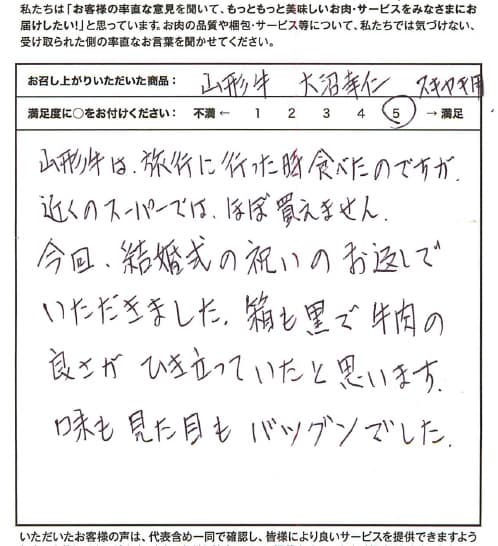 私たちは「お客様の率直な意見を聞いて、もっともっと美味しいお肉・サービスをみなさまにお
届けしたい!」と思っています。お肉の品質や梱包・サービス等について、私たちでは気づけない、
受け取られた側の率直なお言葉を聞かせてください。
お召し上がりいただいた商品： 山形牛 大沼幸仁 スキヤキ用
満足度に○をお付けください： 不満 ← 1 2 3 4 5 → 満足
山形牛は、旅行に行った時食べたのですが、
近くのスーパーでは、ほぼ買えません。
今回、結婚式の祝いのお返しで
いただきました。箱も黒で牛肉の
良さがひき立っていたと思います。
味も見た目もバツグンでした。
いただいたお客様の声は、代表含め一同で確認し、皆様により良いサービスを提供できますよう